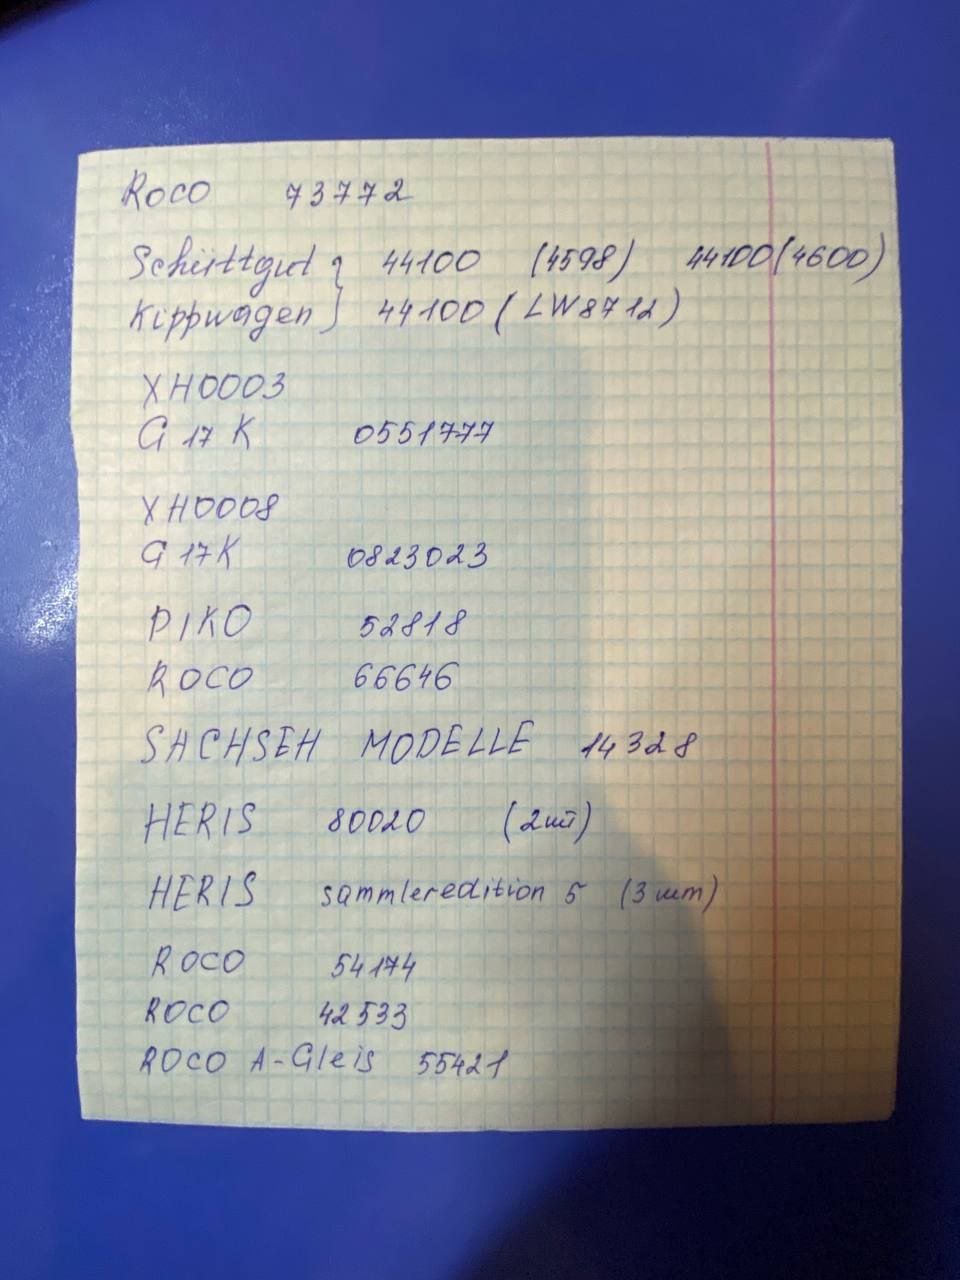 Roco 73772
Schüttgut } 44100 (4598) 44100(4600)
Kippwagen } 44100 (LW8712)
XH0003
G 17 K 0551777
XH0008
G 17K 0823023
PIKO 52818
ROCO 66646
SACHSEH MODELLE 14328
HERIS 80020 (2шт)
HERIS sammleredition 5 (3 шт)
ROCO 54174
ROCO 42533
ROCO A-Gleis 55421